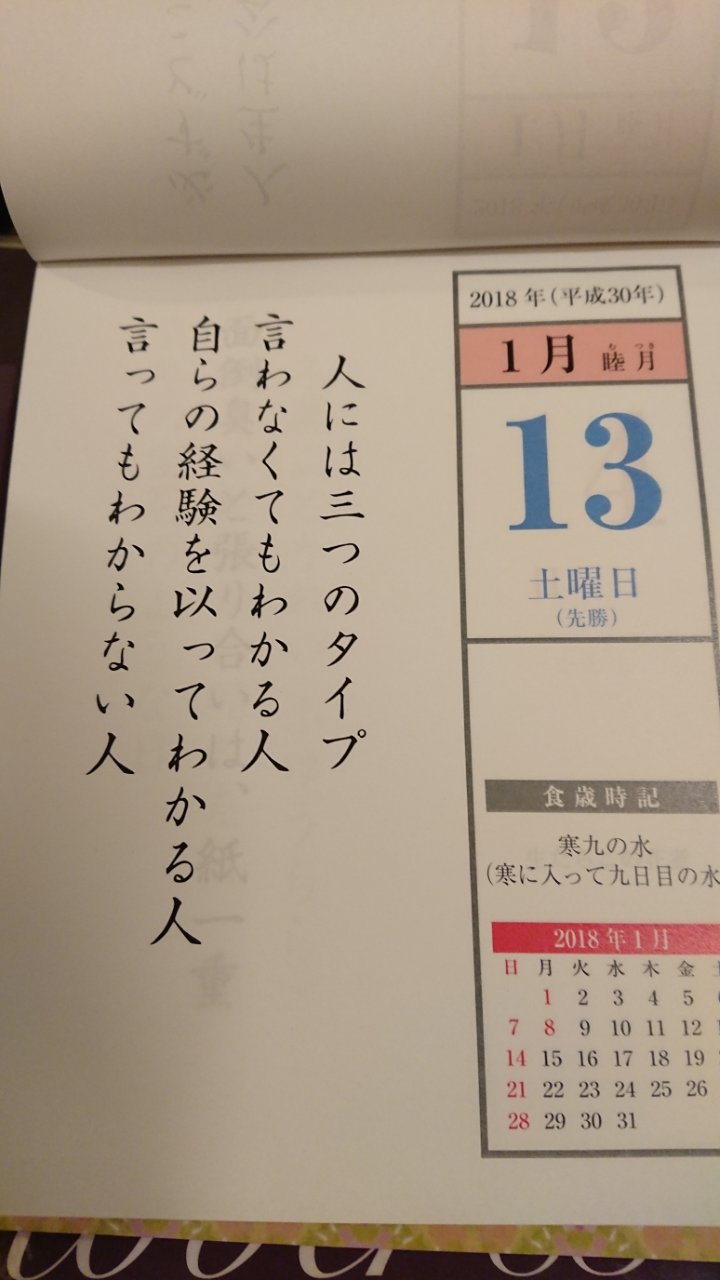 2018年(平成30年)
1月 睦月
むつき
13
土曜日
(先勝)
食歳時記
寒九の水
(寒に入って九日目の水
2018年1月
日 月 火 水 木 金
1 2 3 4 5
7 8 9 10 11 12
14 15 16 17 18 19
21 22 23 24 25 26
28 29 30 31
人には三つのタイプ
言わなくてもわかる人
自らの経験を以ってわかる人
言ってもわからない人